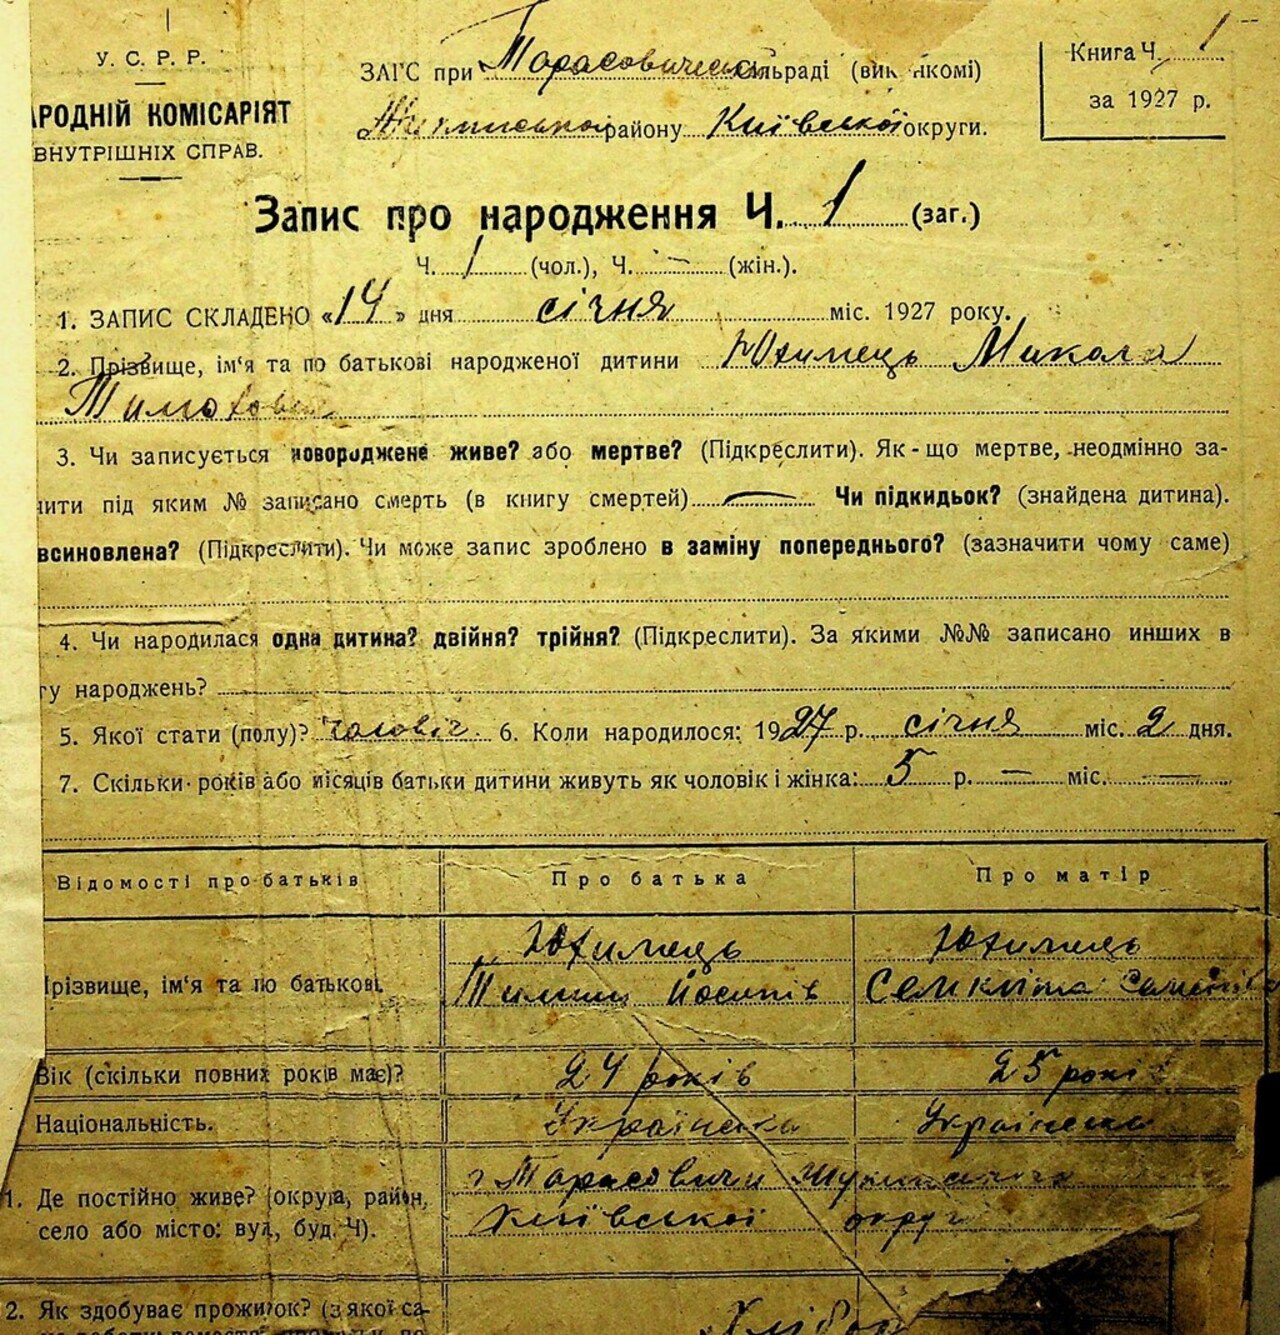 У. С. Р. Р.
АРОДНІЙ КОМІСАРІЯТ
ВНУТРІШНІХ СПРАВ.
ЗАГС при Тарасовичськ сільраді (вик нкомі)
району Київської округи.
Книга Ч. 1
за 1927 р.
Запис про народження Ч. 1 (заг.)
Ч. 1 (чол.), Ч. — (жін.).
1. ЗАПИС СКЛАДЕНО «14» дня січня міс. 1927 року.
2. Прізвище, ім'я та по батькові народженої дитини Юхимець Микола
Тимохович
3. Чи записується новороджене живе? або мертве? (Підкреслити). Як-що мертве, неодмінно за-
чити під яким № записано смерть (в книгу смертей) — Чи підкидьок? (знайдена дитина).
всиновлена? (Підкреслити). Чи може запис зроблено в заміну попереднього? (зазначити чому саме)
4. Чи народилася одна дитина? двійня? трійня? (Підкреслити). За якими №№ записано инших в
гу народжень?
5. Якої стати (полу)? чоловіч. 6. Коли народилося: 1927 р. січня міс. 2 дня.
7. Скільки років або місяців батьки дитини живуть як чоловік і жінка: 5 р. — міс. —
Відомості про батьків
Про батька
Про матір
Прізвище, ім'я та по батькові.
Юхимець
Йосипів
Юхимець
Вік (скільки повних років має)?
24 років
25 років
Національність.
Українська
Українська
1. Де постійно живе? (округа, район,
село або місто: вул, буд. Ч).
Тарасовичи
Київської округ
2. Як здобуває прожиток? (з якої са-
Хлібор